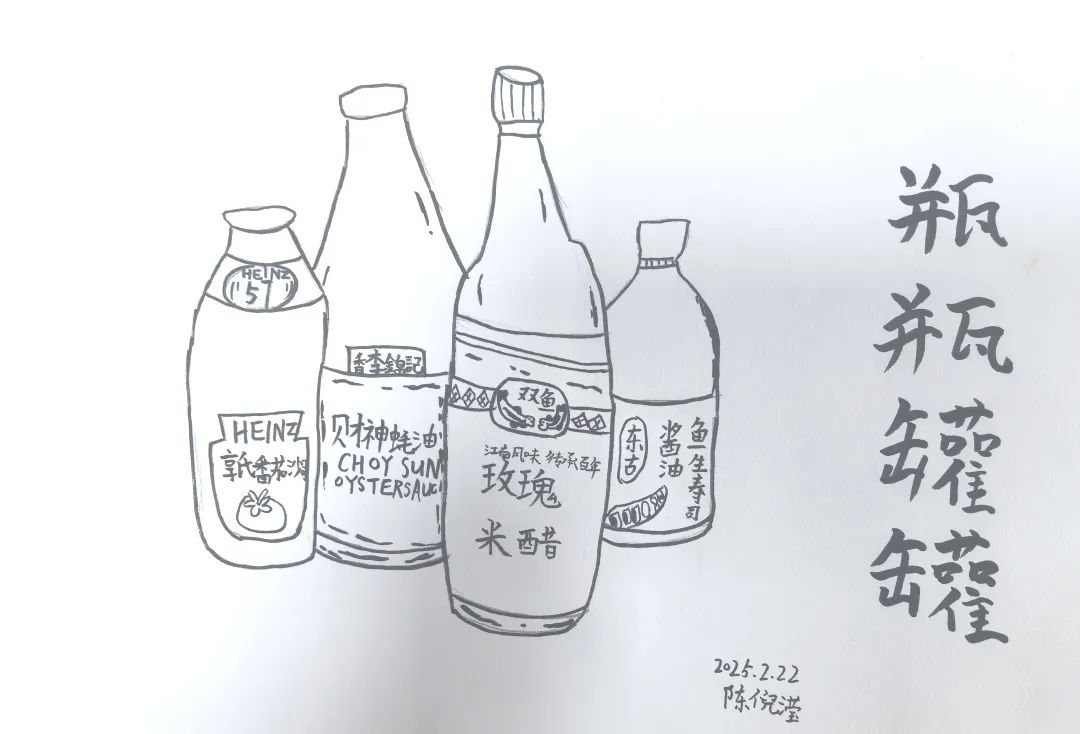 HEINZ
57
HEINZ
香李錦記
财神蚝油
CHOY SUN
OYSTERSAUC
双鱼
江南风味 传承百年
玫瑰
米醋
鱼生寿司
酱油
东古
瓶瓶罐罐
2025.2.22
陈倪滢